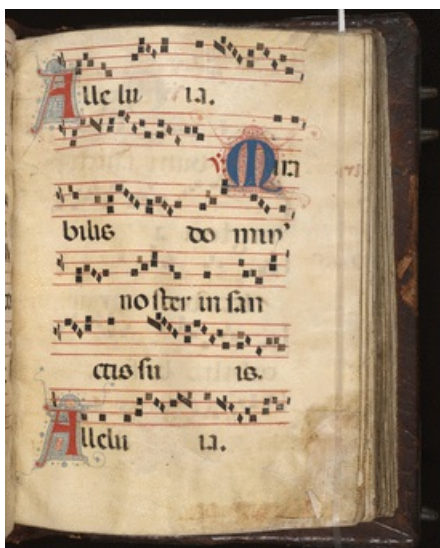 Alle lu ia.
Mira
bilis do min'
noster in san
ctis su is.
Allelu ia.